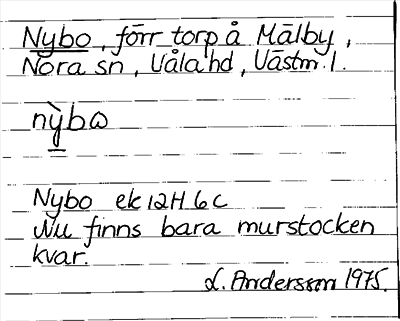 Nybo, förr torp å Mälby,
Nora sn, Våla hd, Västm. l.
nỳbω
Nybo ek 12H 6c
Nu finns bara murstocken
kvar.
L. Andersson 1975.